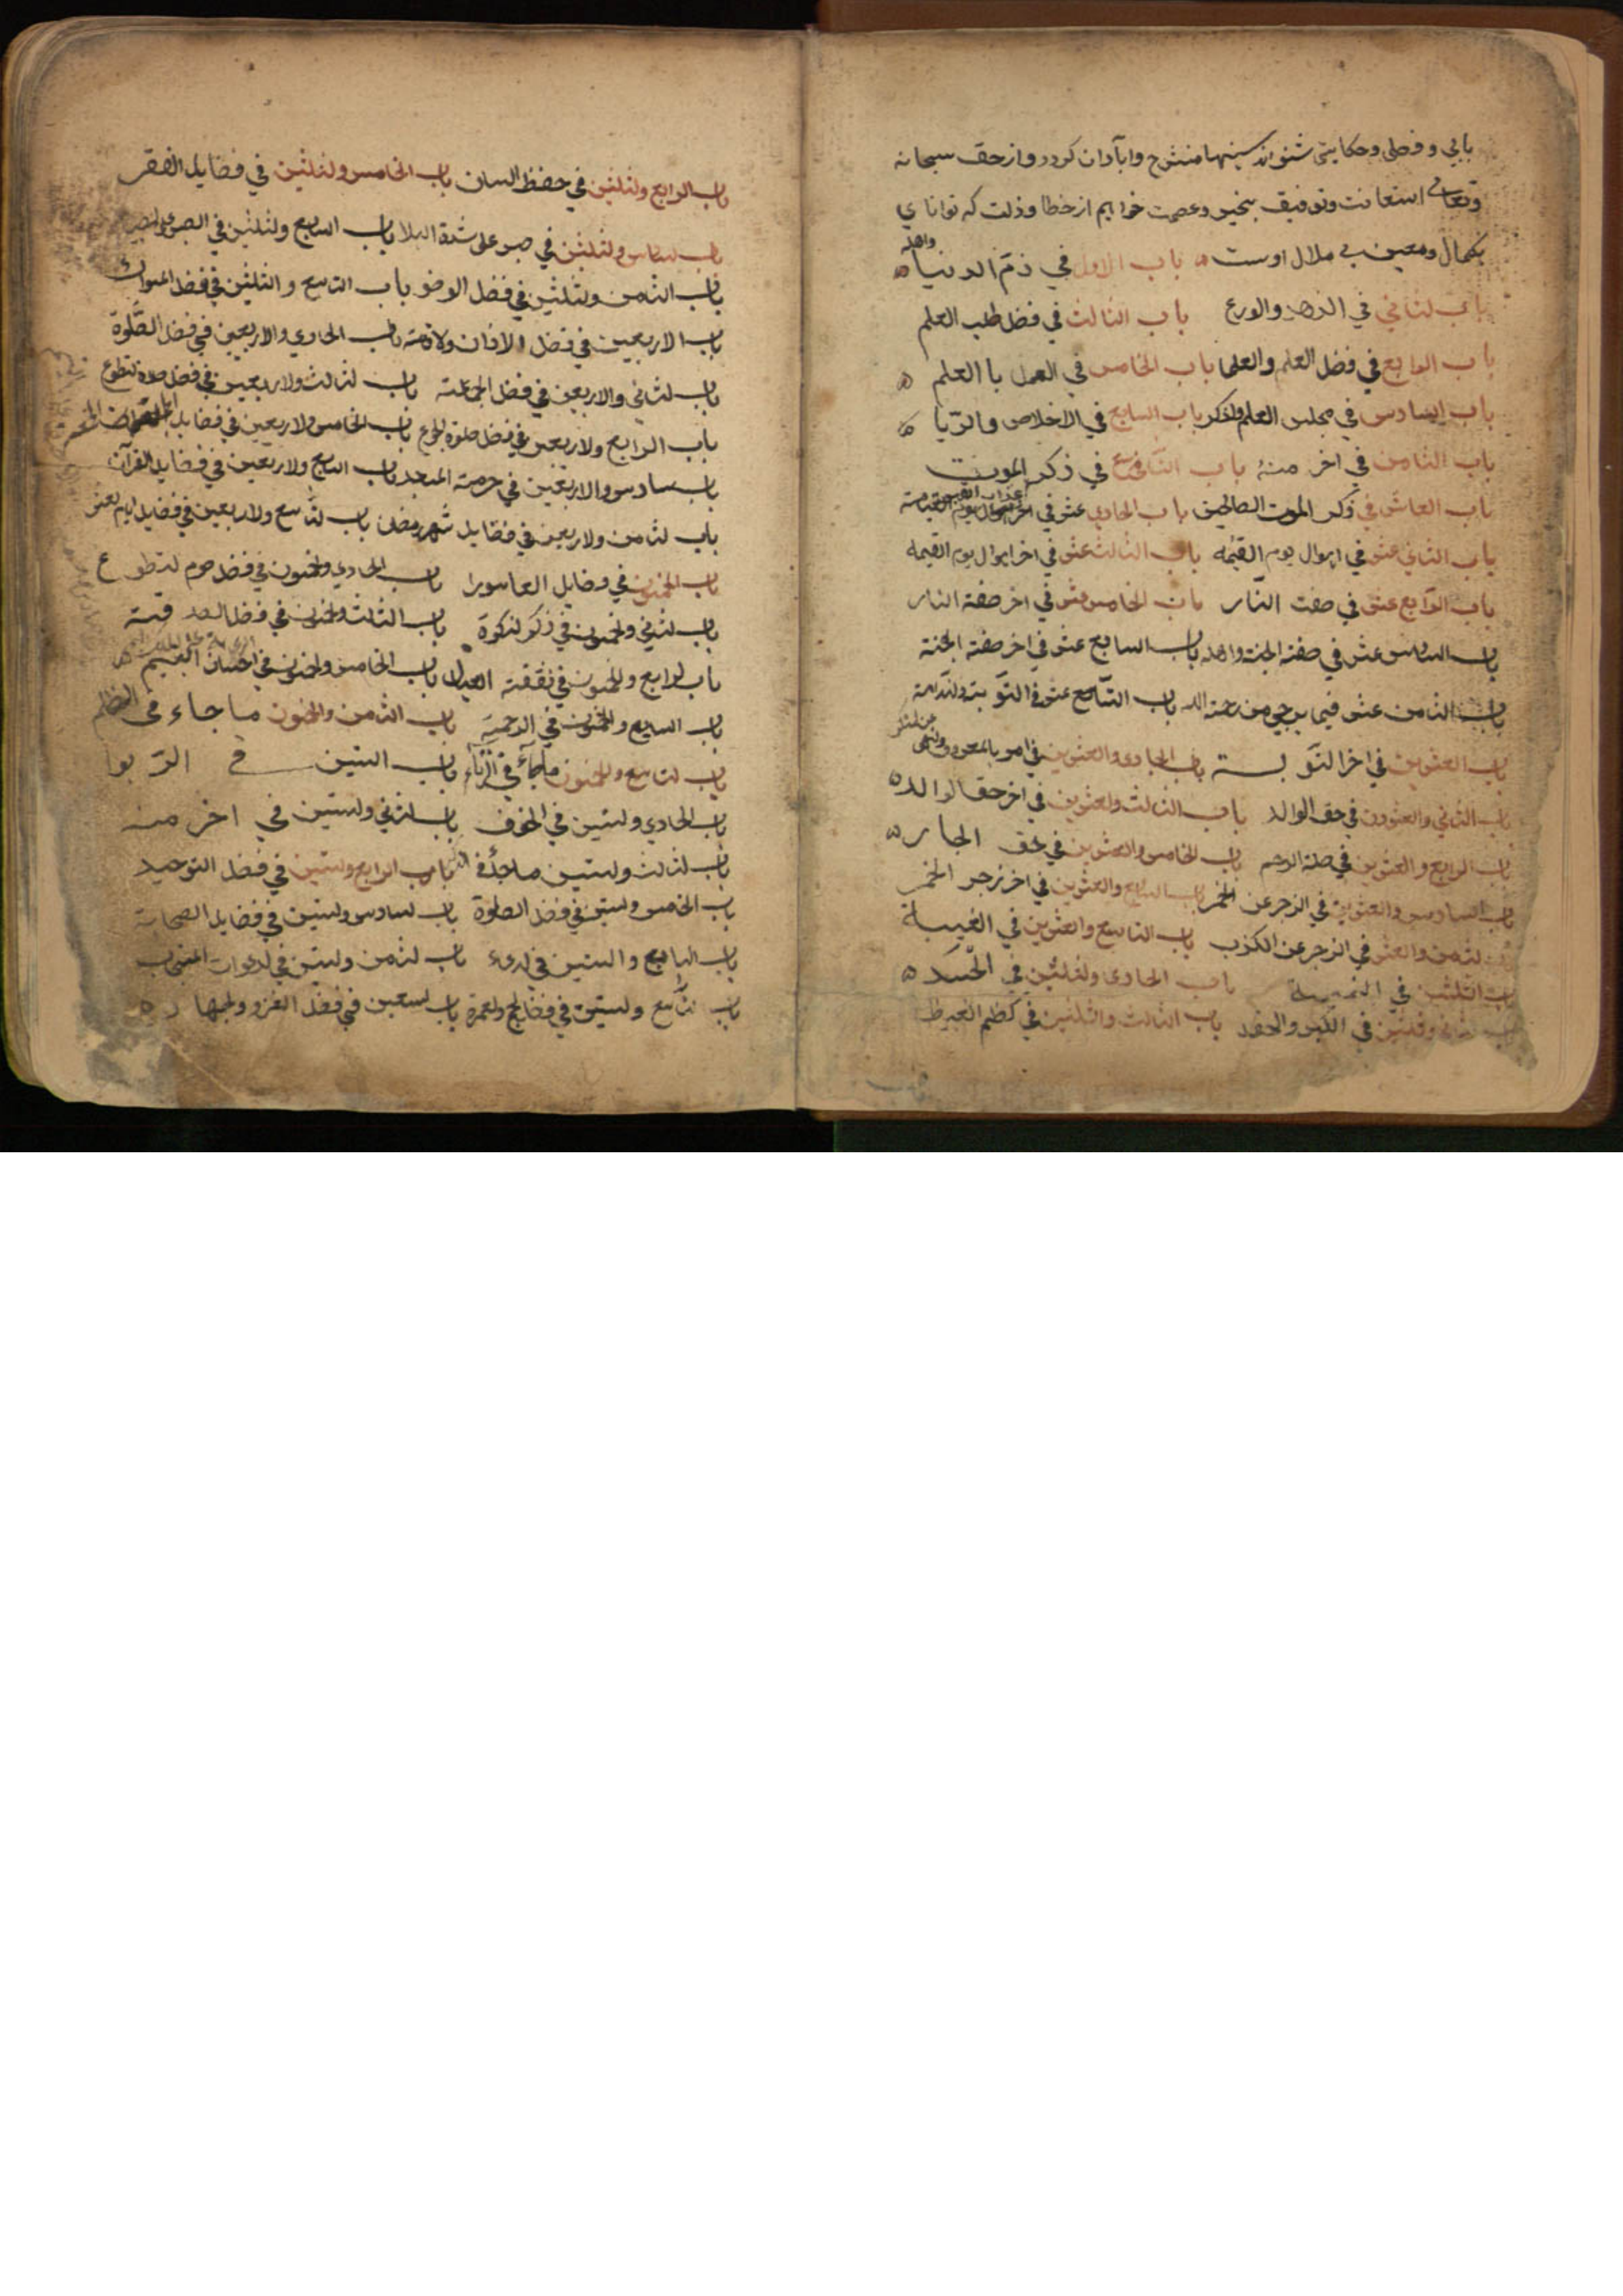 بابی و فصلی و حکایتی شنواند سینها منشرح وابآدان کردد و از حق سبحانه
وتعالی استعانت وتوفیق بخیر وعصمت خواهیم از خطا وذلت که توانای
بکمال ومعین بی ملال اوست باب الاول في ذمّ الدنیا واهله
باب لثاني في الزهد والورع باب الثالث في فضل طلب العلم
باب الرابع في فضل العلم والعلما باب الخامس في العمل باالعلم
باب السادس في مجلس العلم ولذكر باب السابع في الاخلاص والریا
باب الثامن في اخر منهُ باب التاسع في ذكر الموت
باب العاشر في ذكر الموت الصالحین باب الحادي عشر في اهوال یوم القیامة
باب الثاني عشر في اهوال یوم القیٰمه باب الثالث عشر في اخر اهوال یوم القیمه
باب الرّابع عشر في صفت النّار باب الخامس عشر في اخر صفة النار
باب السادس عشر في صفة الجنة واهله باب السابع عشر في اخر صفة الجنة
باب الثامن عشر فیما یرجي من رحمة الله باب التّاسع عشر في التّوبة ولنّدامة
باب العشرین في اخر التّوبسة باب الحادي والعشرین في امر بالمعروف ولنهي عن لمنكر
باب الثاني والعشرون في حق الوالد باب الثالث ولعشرین في اخر حق الوالد
باب الرابع والعشرین في صلة الرحم باب الخامس والعشرین في حق الجار
باب السادس والعشرین في الزجر عن الخمر باب السابع والعشرین في اخر زجر الخمر
باب لثمن والعشر في الزجر عن الكذب باب التاسع والعشرین في الغیبة
باب الثلثین في النمیمة باب الحادي ولثلثین في الحَسَد
وثلثین في الكبر والحقد باب الثالث والثلثین في كظم الغیظ
باب الرابع ولثلثین في حفظ السان باب الخامس ولثلثین في فضایل الفقر
باب لسادس ولثلثین في صبر علی شدة البلا باب السابع ولثلثین في الصبر
باب الثامن ولثلثین في فضل الوضو باب التاسع والثلثین في فضل السواك
باب الاربعین في فضل الاذان ولاقامة باب الحادي والاربعین في فضل الصّلوة
باب لثاني والاربعین في فضل الجماعته باب لثالث ولاربعین في فضل صلوة لتطوع
باب الرابع ولاربعین في فضل صلوة الجمع باب الخامس ولاربعین في فضایل
باب سادس والاربعین في حرمة المسجد باب السابع ولاربعین في فضایل القرآن
باب لثامن ولاربعین في فضایل شهر رمضان باب لتّاسع ولاربعین في فضایل ایام لعشر
باب الخمسون في فضایل العاسورا باب الحادي ولخمسون في فضل صوم لتطوع
باب لثاني ولخمسون في ذكر لزكوة باب الثالث ولخمسون في فضل الصدقة
باب لرابع ولخمسون في نفقة العیال باب الخامس ولخمسون في احسان الیتیم
باب السابع ولخمسون في الرحمة باب الثامن والخمسون ما جاء في الظلم
باب لتاسع ولخمسون ماجآء في الزناء باب الستین في الرّبوا
باب الحادي ولستین في الخوف باب لثاني ولستین في اخر منه
باب لثالث ولستین ماجاء في باب الرابع ولستین في فضل التوحید
باب الخامس ولستین في فضل الصلوة باب لسادس ولستین في فضایل الصحابة
باب السابع والستین في لدعاء باب لثمن ولستین في لدعوات المستجاب
باب لتّاسع ولستین في فضایل الحج ولعمرة باب لسبعین في فضل الغزو ولجهاد